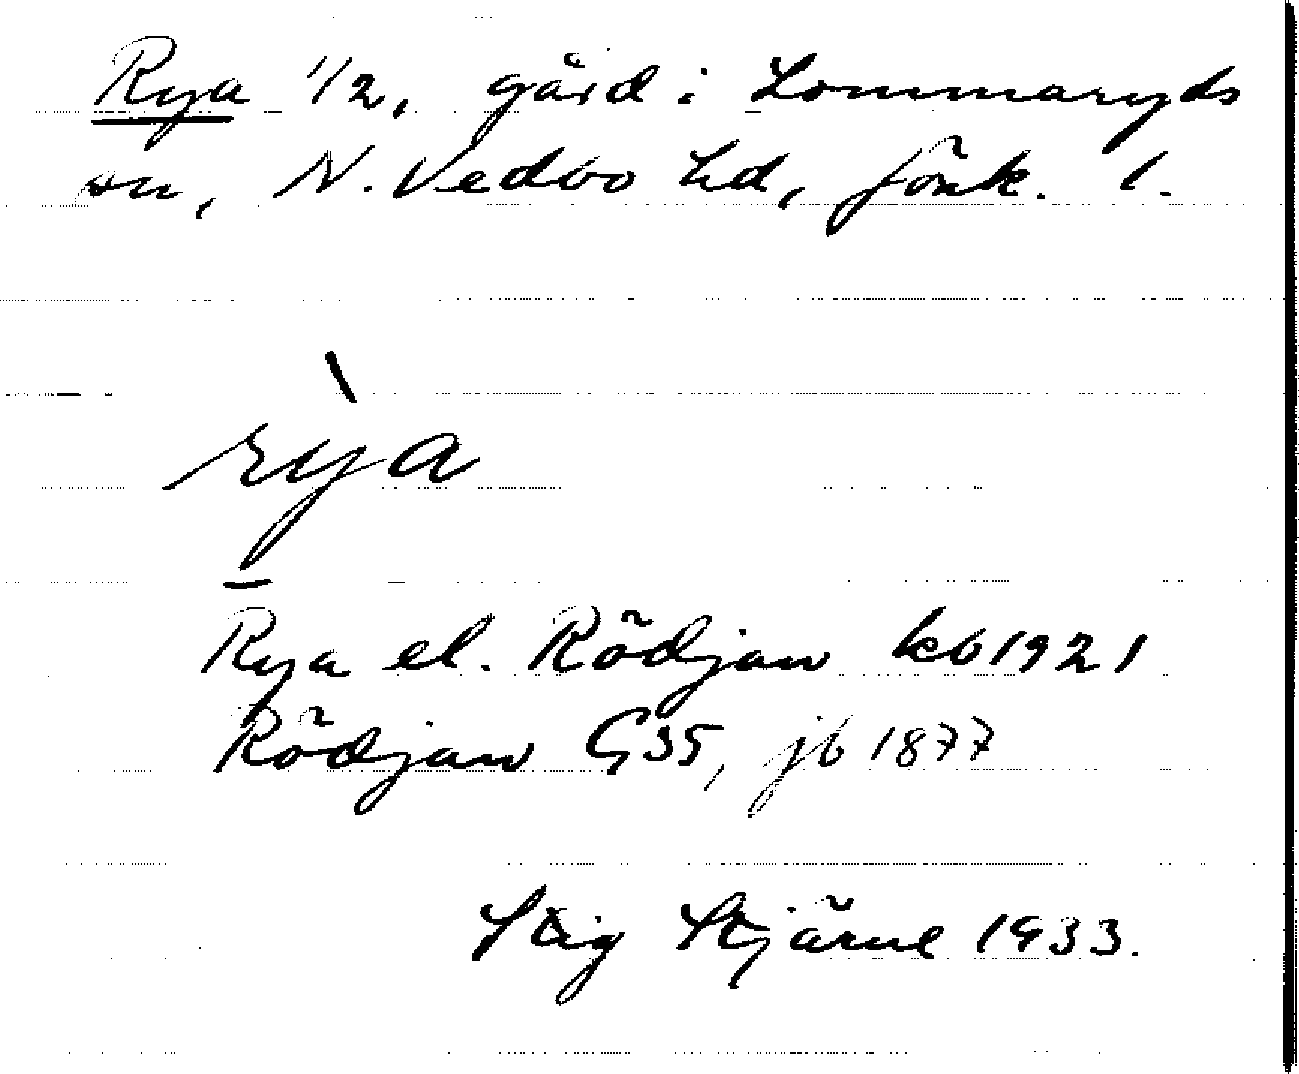 Rya 1/2, gård i Lommaryds
sn, N. Vedbo hd, Jönk. l.
rỳa
Rya el. Rödjan kb 1921
Rödjan G35, jb 1877
Stig Stjärne 1933.